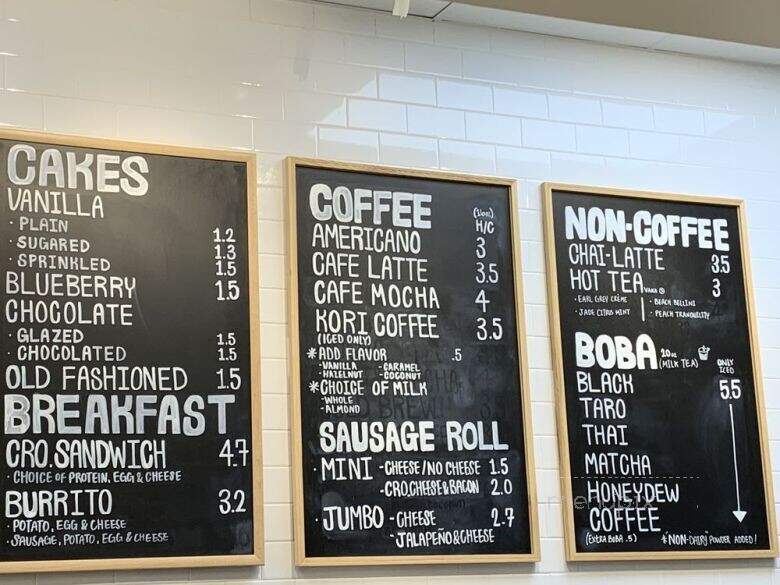 CAKES
VANILLA
· PLAIN 1.2
· SUGARED 1.3
· SPRINKLED 1.5
BLUEBERRY 1.5
CHOCOLATE
· GLAZED 1.5
· CHOCOLATED 1.5
OLD FASHIONED 1.5
BREAKFAST
CRO.SANDWICH 4.7
· CHOICE OF PROTEIN, EGG & CHEESE
BURRITO 3.2
· POTATO, EGG & CHEESE
· SAUSAGE, POTATO, EGG & CHEESE
COFFEE H/C
AMERICANO 3
CAFE LATTE 3.5
CAFE MOCHA 4
KORI COFFEE 3.5
(ICED ONLY)
*ADD FLAVOR .5
-VANILLA -CARAMEL
-HAZELNUT -COCONUT
*CHOICE OF MILK
-WHOLE
-ALMOND
SAUSAGE ROLL
· MINI -CHEESE/NO CHEESE 1.5
-CRO,CHEESE&BACON 2.0
· JUMBO -CHEESE 2.7
-JALAPEÑO&CHEESE
NON-COFFEE
CHAI-LATTE 3.5
HOT TEA 3
· EARL GREY CRÈME · BEACH BELLINI
· JADE CITRUS MINT · PEACH TRANQUILITY
BOBA (MILK TEA) ONLY ICED
BLACK 5.5
TARO
THAI
MATCHA
HONEYDEW
COFFEE
(EXTRA BOBA .5) *"NON-DAIRY" POWDER ADDED!